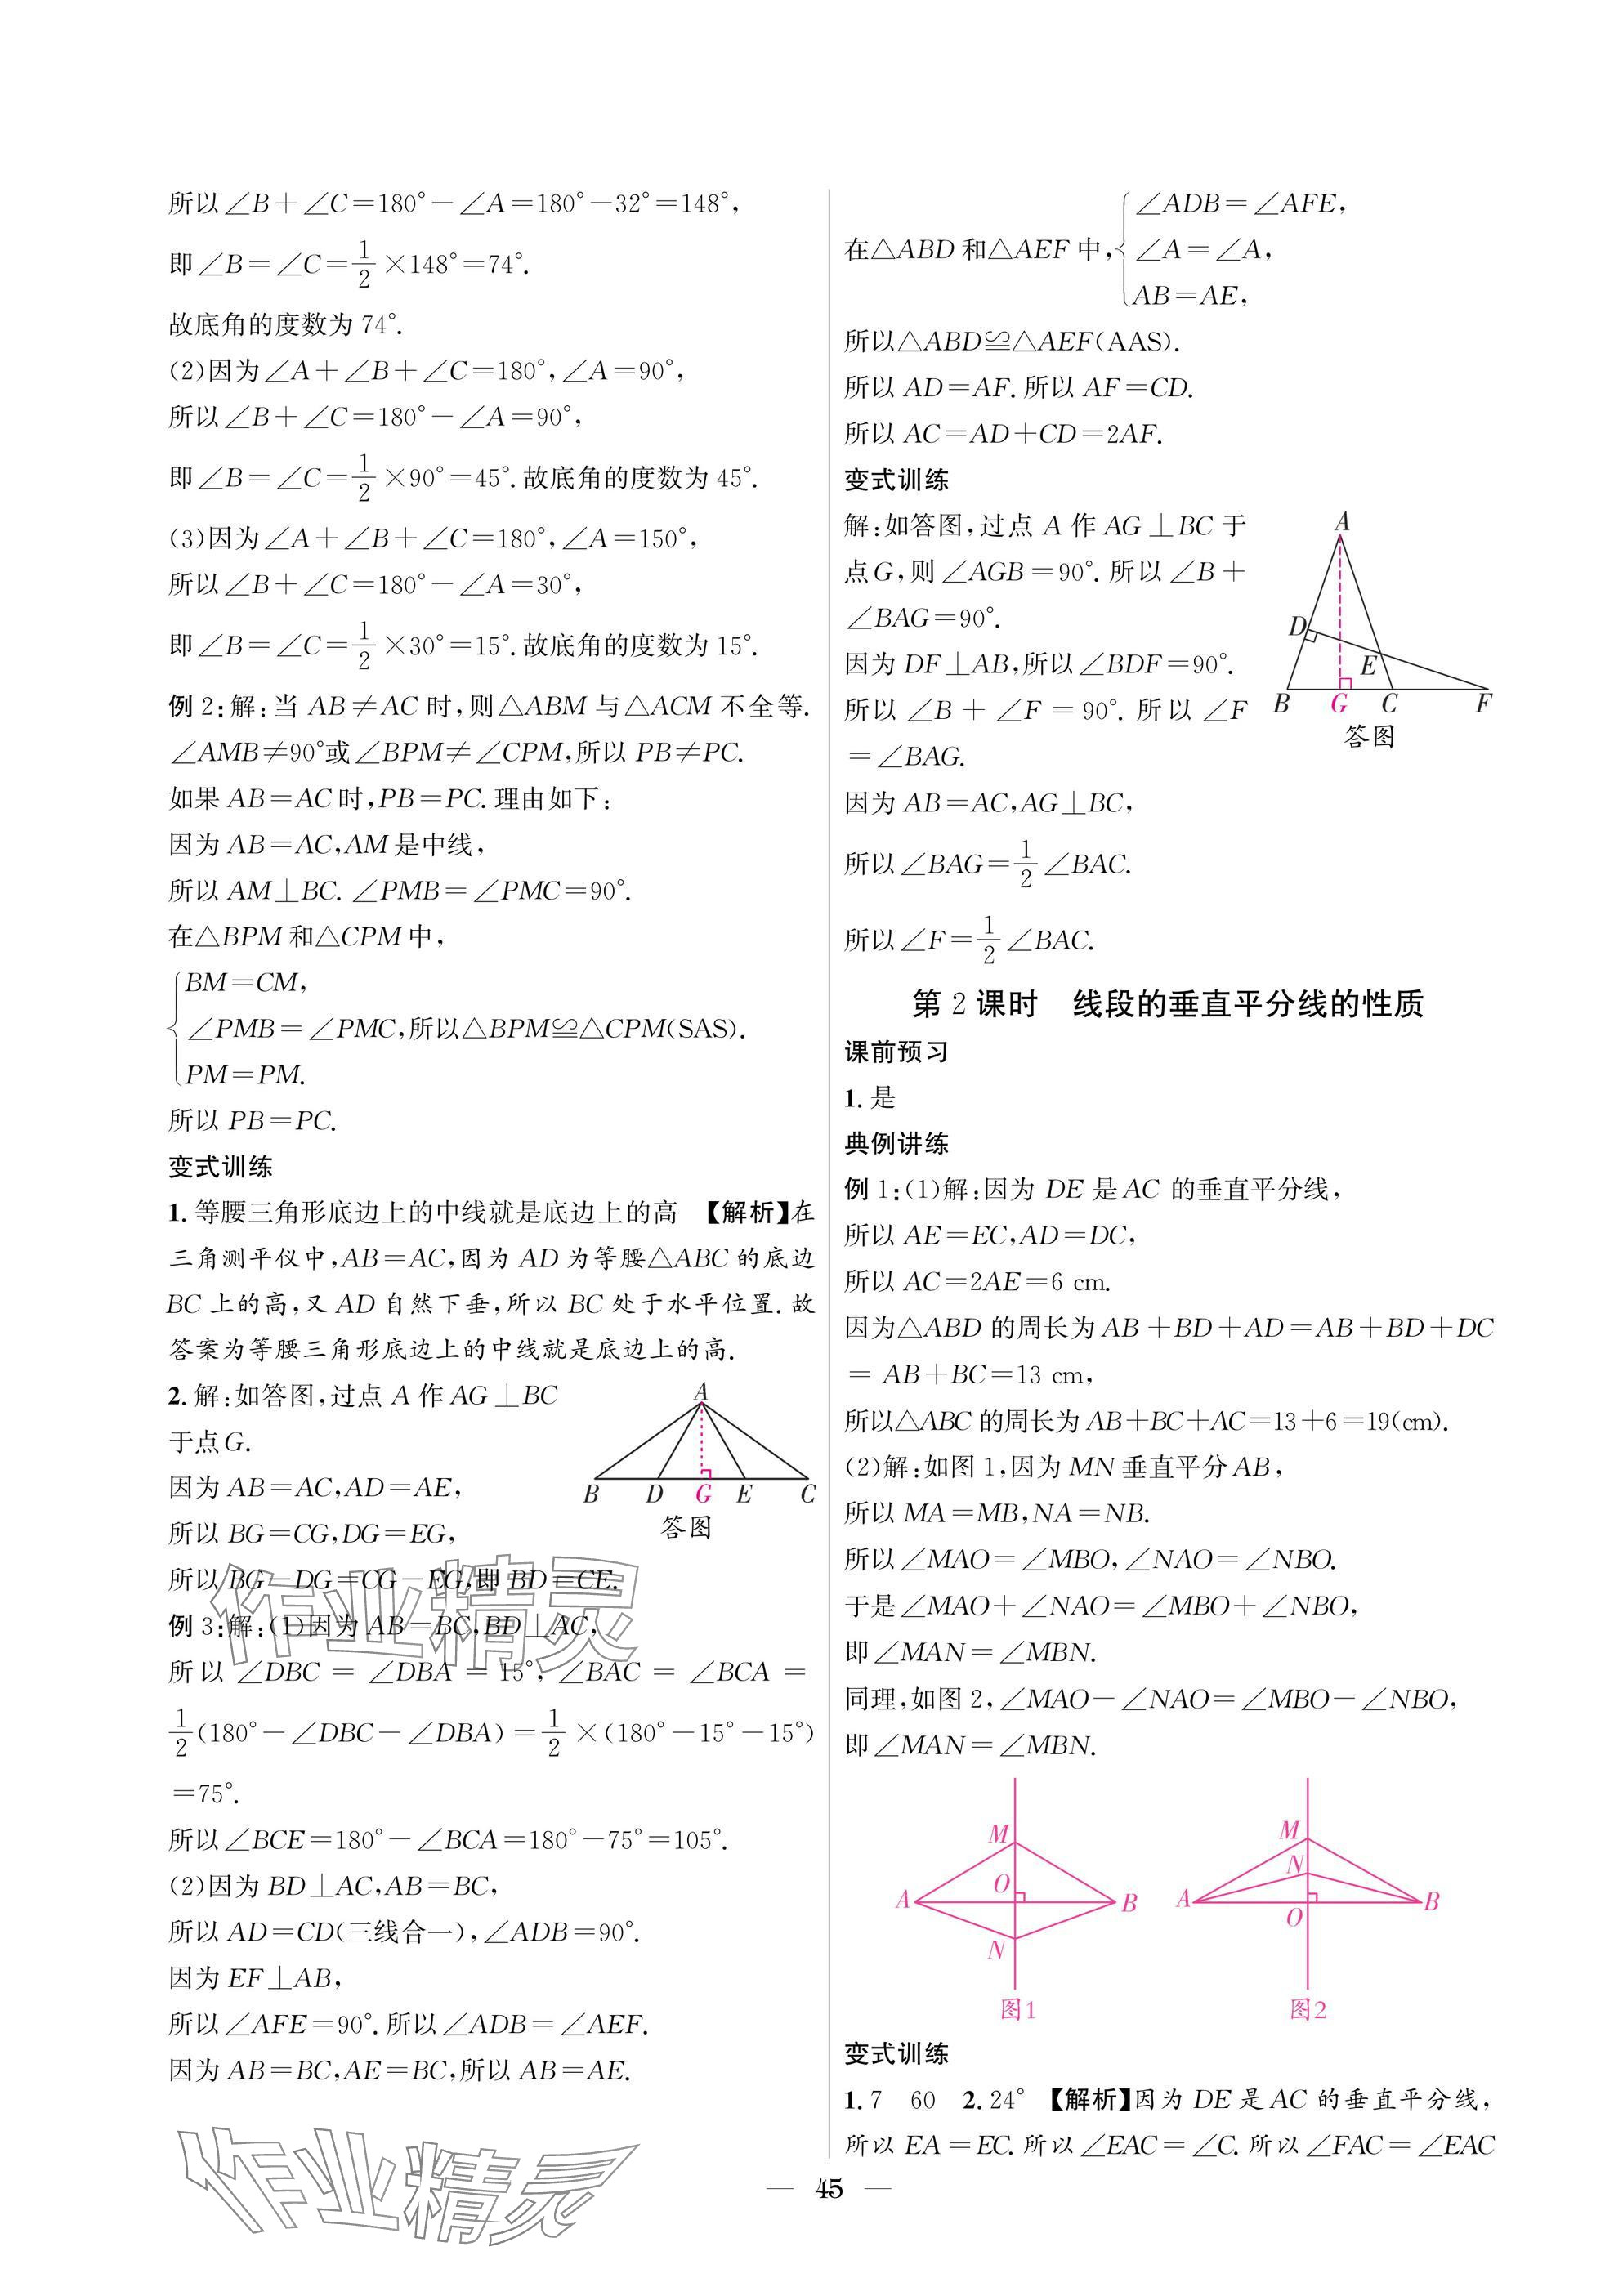 所以∠B+∠C=180°-∠A=180°-32°=148°,
即∠B=∠C=1/2×148°=74°.
故底角的度数为 74°.
(2)因为∠A+∠B+∠C=180°,∠A=90°,
所以∠B+∠C=180°-∠A=90°,
即∠B=∠C=1/2×90°=45°.故底角的度数为 45°.
(3)因为∠A+∠B+∠C=180°,∠A=150°,
所以∠B+∠C=180°-∠A=30°,
即∠B=∠C=1/2×30°=15°.故底角的度数为 15°.
例 2:解:当 AB≠AC 时,则△ABM 与△ACM 不全等.
∠AMB≠90°或∠BPM≠∠CPM,所以 PB≠PC.
如果 AB=AC 时,PB=PC.理由如下:
因为 AB=AC,AM 是中线,
所以 AM⊥BC.∠PMB=∠PMC=90°.
在△BPM 和△CPM 中,
BM=CM,
∠PMB=∠PMC,所以△BPM≌△CPM(SAS).
PM=PM.
所以 PB=PC.
变式训练
1. 等腰三角形底边上的中线就是底边上的高 【解析】在
三角测平仪中,AB=AC,因为 AD 为等腰△ABC 的底边
BC 上的高,又 AD 自然下垂,所以 BC 处于水平位置.故
答案为等腰三角形底边上的中线就是底边上的高.
2. 解:如答图,过点 A 作 AG⊥BC
于点 G.
因为 AB=AC,AD=AE,
所以 BG=CG,DG=EG,
所以 BG-DG=CG-EG,即 BD=CE.
A
B D G E C
答图
例 3:解:(1)因为 AB=BC,BD⊥AC,
所以 ∠DBC = ∠DBA = 15°, ∠BAC = ∠BCA =
1/2(180°-∠DBC-∠DBA)=1/2×(180°-15°-15°)
=75°.
所以∠BCE=180°-∠BCA=180°-75°=105°.
(2)因为 BD⊥AC,AB=BC,
所以 AD=CD(三线合一),∠ADB=90°.
因为 EF⊥AB,
所以∠AFE=90°.所以∠ADB=∠AEF.
因为 AB=BC,AE=BC,所以 AB=AE.
∠ADB=∠AFE,
在△ABD 和△AEF 中, ∠A=∠A,
AB=AE,
所以△ABD≌△AEF(AAS).
所以 AD=AF.所以 AF=CD.
所以 AC=AD+CD=2AF.
变式训练
解:如答图,过点 A 作 AG⊥BC 于
点 G,则∠AGB=90°.所以∠B+
∠BAG=90°.
因为 DF⊥AB,所以∠BDF=90°.
所以 ∠B + ∠F = 90°. 所以 ∠F
=∠BAG.
A
D
E
B G C F
答图
因为 AB=AC,AG⊥BC,
所以∠BAG=1/2∠BAC.
所以∠F=1/2∠BAC.
第 2 课时 线段的垂直平分线的性质
课前预习
1. 是
典例讲练
例 1:(1)解:因为 DE 是 AC 的垂直平分线,
所以 AE=EC,AD=DC,
所以 AC=2AE=6 cm.
因为△ABD 的周长为 AB+BD+AD=AB+BD+DC
=AB+BC=13 cm,
所以△ABC 的周长为 AB+BC+AC=13+6=19(cm).
(2)解:如图 1,因为 MN 垂直平分 AB,
所以 MA=MB,NA=NB.
所以∠MAO=∠MBO,∠NAO=∠NBO.
于是∠MAO+∠NAO=∠MBO+∠NBO,
即∠MAN=∠MBN.
同理,如图 2,∠MAO-∠NAO=∠MBO-∠NBO,
即∠MAN=∠MBN.
M
O
A B
N
图1
M
N
A B
O
图2
变式训练
1. 7 60 2. 24° 【解析】因为 DE 是 AC 的垂直平分线,
所以 EA=EC.所以∠EAC=∠C.所以∠FAC=∠EAC
— 45 —
作业精灵
作业精灵